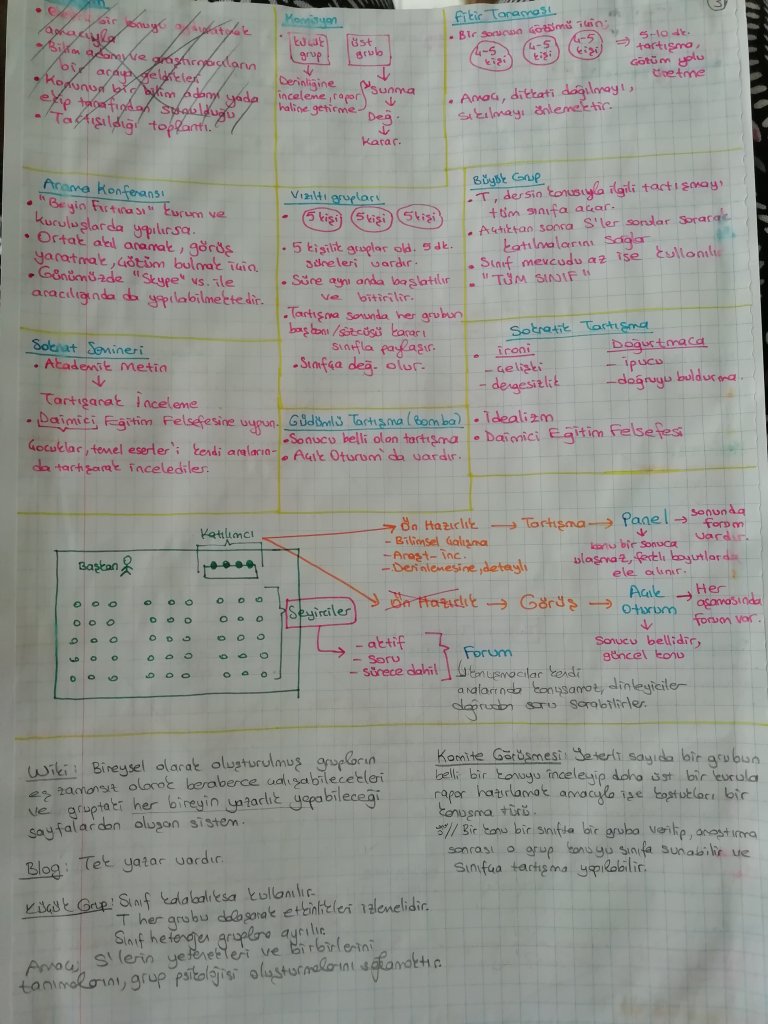 • Belli bir konuyu aydınlatmak
amacıyla
• Bilim adamı ve araştırmacıların
bir araya geldikleri
• Konunun bir bilim adamı yada
ekip tarafından sunulduğu
• Tartışıldığı toplantı.
Komisyon
küçük grup
üst grup
Derinliğine
inceleme, rapor
haline getirme.
Sunma
Değ.
Karar.
Fikir Taraması
• Bir sorunun çözümü için;
4-5 kişi
4-5 kişi
4-5 kişi
⇒ 5-10 dk.
tartışma,
çözüm yolu
üretme
• Amaç, dikkati dağılmayı,
sıkılmayı önlemektir.
Arama Konferansı
• "Beyin Fırtınası" kurum ve
kuruluşlarda yapılırsa.
• Ortak akıl aramak, görüş
yaratmak, çözüm bulmak için.
• Günümüzde "Skype" vs. ile
aracılığında da yapılabilmektedir.
Vızıltı grupları
• 5 kişi 5 kişi 5 kişi
• 5 kişilik gruplar old. 5 dk.
süreleri vardır.
• Süre aynı anda başlatılır
ve bitirilir.
• Tartışma sonunda her grubun
başkanı/sözcüsü kararı
sınıfla paylaşır.
• Sınıfça değ. olur.
Büyük Grup
• T, dersin konusuyla ilgili tartışmayı
tüm sınıfa açar.
• Açtıktan sonra S'ler sorular sorarak
katılmalarını sağlar
• Sınıf mevcudu az ise kullanılır
• "TÜM SINIF"
Sokrat Semineri
• Akademik Metin
↓
Tartışarak İnceleme
• Daimici Eğitim Felsefesine uygun.
Çocuklar, temel eserler'i kendi araların-
da tartışarak incelediler.
Güdümlü Tartışma (Bomba)
• Sonucu belli olan tartışma
• Açık Oturum'da vardır.
Sokratik Tartışma
• ironi
- çelişki
- dengesizlik
Doğurtmaca
- ipucu
- doğruyu buldurma
• İdealizm
• Daimici Eğitim Felsefesi
Katılımcı
Başkan
Seyirciler
Ön Hazırlık → Tartışma → Panel → sonunda
forum
vardır.
- Bilimsel Çalışma
- Araşt-inc.
- Derinlemesine, detaylı
konu bir sonuca
ulaşmaz, farklı boyutlarda
ele alınır.
Ön Hazırlık → Görüş → Açık Oturum → Her
aşamasında
forum var.
Sonucu bellidir,
güncel konu
- aktif
- soru
- sürece dahil
Forum
↳ konuşmacılar kendi
aralarında konuşamaz, dinleyiciler
doğrudan soru sorabilirler.
Wiki: Bireysel olarak oluşturulmuş grupların
eş zamansız olarak beraberce çalışabilecekleri
ve gruptaki her bireyin yazarlık yapabileceği
sayfalardan oluşan sistem.
Blog: Tek yazar vardır.
Küçük Grup: Sınıf kalabalıksa kullanılır.
T her grubu dolaşarak etkinlikleri izlemelidir.
Sınıf heterojen gruplara ayrılır.
Amaç; S'lerin yetenekleri ve birbirlerini
tanımalarını, grup psikolojisi oluşturmalarını sağlamaktır.
Komite Görüşmesi: Yeterli sayıda bir grubun
belli bir konuyu inceleyip daha üst bir kurula
rapor hazırlamak amacıyla işe koştukları bir
konuşma türü.
// Bir konu bir sınıfta bir gruba verilip, araştırma
sonrası o grup konuyu sınıfa sunabilir ve
sınıfça tartışma yapılabilir.